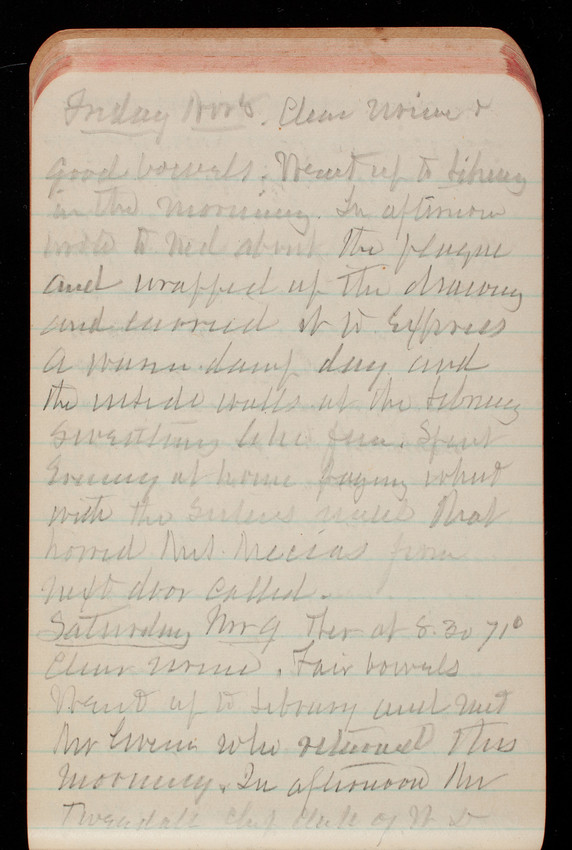 Friday Nov 8. Clear Urine &
good bowels. Went up to Library
in the morning. In afternoon
wrote to Ned about the plaque
and wrapped up the drawing
and carried it to Express
A warm damp day and
the inside walls at the Library
Sweating like fun. Spent
Evening at home playing whist
with the Sisters until that
horrid Mrs from
next door called.
Saturday Nov 9 Ther at 8.30 71°
Clear Urine. Fair bowels
Went up to Library and met
Mr who returned this
morning. In afternoon Mr
Tweedale chf clk of W D